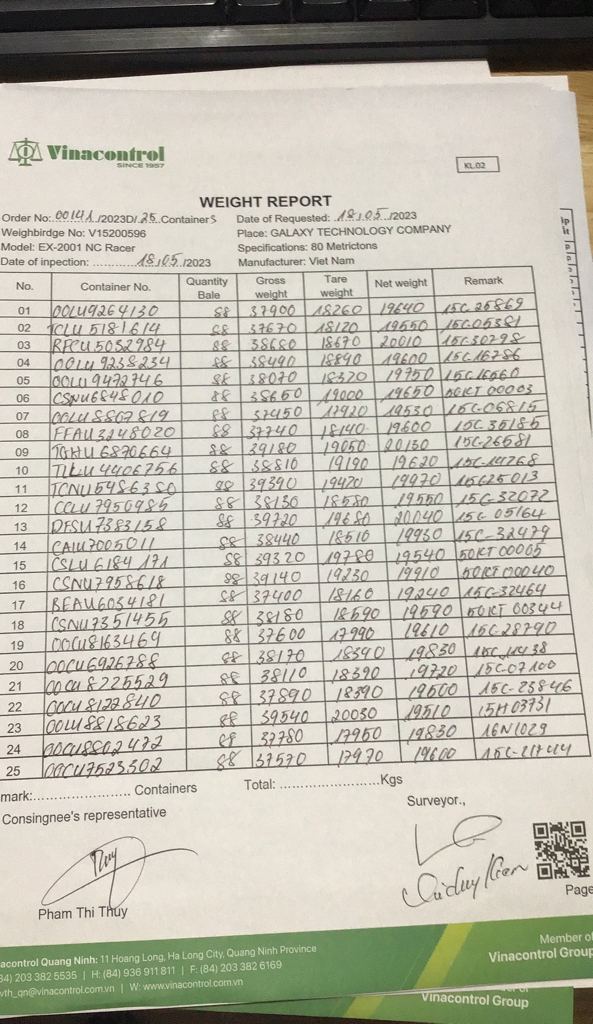 Vinacontrol
SINCE 1957
KL.02
WEIGHT REPORT
Order No: 00141/2023D/ 25 Containers Date of Requested: 18/05/2023
Weighbirdge No: V15200596 Place: GALAXY TECHNOLOGY COMPANY
Model: EX-2001 NC Racer Specifications: 80 Metrictons
Date of inpection: ............ 18/05/2023 Manufacturer: Viet Nam
No. Container No. Quantity Bale Gross weight Tare weight Net weight Remark
01 OOLU9264130 88 37900 18260 19640 15C 26869
02 TCLU 5181614 88 37670 18120 19550 15C05381
03 RFCU5032984 88 38680 18670 20010 15C30798
04 OOLU 9238234 88 38490 18890 19600 15C16786
05 OOLU 9472746 88 38070 18320 19750 15C16660
06 CSNU6848010 88 38650 19000 19650 50RT 00003
07 OOLU8807819 88 37450 17920 19530 15C-06815
08 FFAU3248020 88 37740 18140 19600 15C 35185
09 TGHU 6870664 88 39180 19050 20130 15C-26581
10 88 38810 19190 19620 15C-14768
11 TCNU5486380 88 39390 19420 19970 15C25013
12 CCLU7950985 88 38130 18580 19550 15C-32072
13 DFSU7383158 88 39720 19680 20040 15C 05164
14 CAIU7005011 88 38440 18510 19930 15C-32479
15 CSLU6184171 88 39320 19780 19540 50RT 00005
16 CSNU7958618 88 39140 19230 19910 50RT 00040
17 BEAU6034181 88 37400 18160 19240 15C-32464
18 CSNU7351455 88 38180 18590 19590 50RT 00344
19 OOCU8163469 88 37600 17990 19610 15C-28790
20 OOCU6926788 88 38170 18340 19830
21 OOCU8725529 88 38110 18390 19720 15C07100
22 OOCU8122840 88 37890 18390 19500 15C-23846
23 OOLU8818623 88 39540 20030 19510 15H03731
24 OOCU8802472 88 37780 17950 19830 16N1029
25 OOCU7523302 88 37570 17970 19600
mark:........................ Containers Total: ........................Kgs
Consingnee's representative Surveyor.,
Thuy
Pham Thi Thuy
Page
acontrol Quang Ninh: 11 Hoang Long, Ha Long City, Quang Ninh Province
84) 203 382 5535 | H: (84) 936 911 811 | F: (84) 203 382 6169
vth_qn@vinacontrol.com.vn | W: www.vinacontrol.com.vn
Member of
Vinacontrol Group
Vinacontrol Group